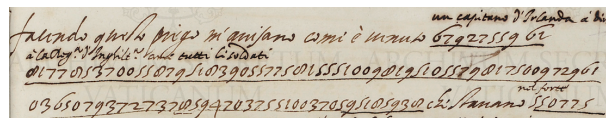 un capitano d'Irlanda à di
facendo questo priego m'avisano come è venuto 6792755961
à la Reg.ª d'Inghilt.ª tutti li soldati
0817785370055879518390557508155510098195105579817500972961
nel forte
03650793727378594703755100370595185938 chi stavano 550775